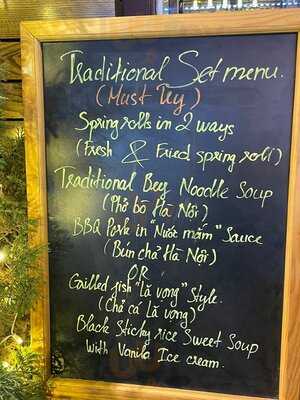 Traditional Set menu.
(Must Try)
Spring rolls in 2 ways
(Fresh & Fried spring roll)
Traditional Beef Noodle Soup
(Phở bò Hà Nội)
BBQ Pork in "Nước mắm" Sauce
(Bún chả Hà Nội)
OR
Grilled fish "Lã vọng" Style.
(Chả cá Lã vọng)
Black Sticky rice Sweet Soup
With Vanila Ice cream.